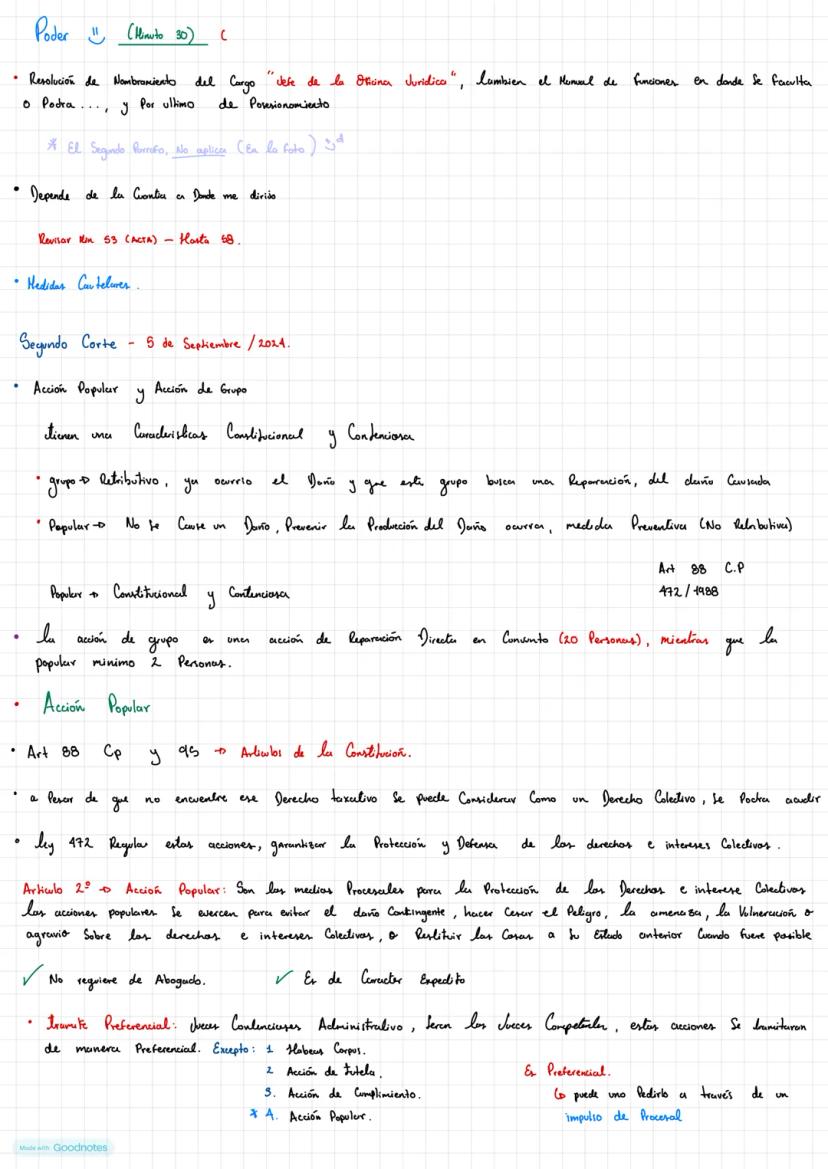 Poder (Minuto 30) (
• Resolución de Nombramiento del Cargo "Jefe de la Oficina Juridica", tambien el Manual de funciones en donde se faculta
o Podra ..., y Por ultimo de Posesionamiento
* El Segundo Parrafo, No aplica (En la foto)
• Depende de la Cuantia a Donde me dirijo
Revisar Min 53 (ACTA) - Hasta 58.
• Medidas Cautelares.
Segundo Corte - 5 de Septiembre / 2024.
• Acción Popular y Acción de Grupo
tienen una Caracteristicas Constitucional y Contenciosa
• grupo → Retributivo, ya ocurrio el Daño y que este grupo busca una Reparación, del daño Causada
• Popular → No se Cause un Daño, Prevenir la Producción del Daño ocurra, medida Preventiva (No Retributiva)
Art 88 C.P
Popular → Constitucional y Contenciosa 472/1988
• la acción de grupo es una acción de Reparación Directa en Conjunto (20 Personas), mientras que la
popular minimo 2 Personas.
• Acción Popular
• Art 88 Cp y 95 → Articulos de la Constitución.
• a Pesar de que no encuentre ese Derecho taxativo Se puede Considerar Como un Derecho Colectivo, Se Podra acudir
• ley 472 Regula estas acciones, garantizar la Protección y Defensa de los derechos e intereses Colectivos.
Articulo 2º → Acción Popular: Son los medios Procesales para la Protección de los Derechos e interese Colectivos
las acciones populares Se ejercen para evitar el daño Contingente, hacer Cesar el Peligro, la amenaza, la Vulneración o
agravio Sobre los derechos e intereses Colectivos, o Restituir las Cosas a Su Estado anterior Cuando fuere posible
✓ No requiere de Abogado. ✓ Es de Caracter Expedito
• tramite Preferencial: Jueces Contenciosos Administrativo, Seran los Jueces Competentes, estas acciones Se tramitaran
de manera Preferencial. Excepto: 1 Habeas Corpus.
2 Acción de tutela. Es Preferencial.
3. Acción de Cumplimiento. ↳ puede uno Pedirlo a través de un
* 4. Acción Popular. impulso de Procesal
Made with Goodnotes